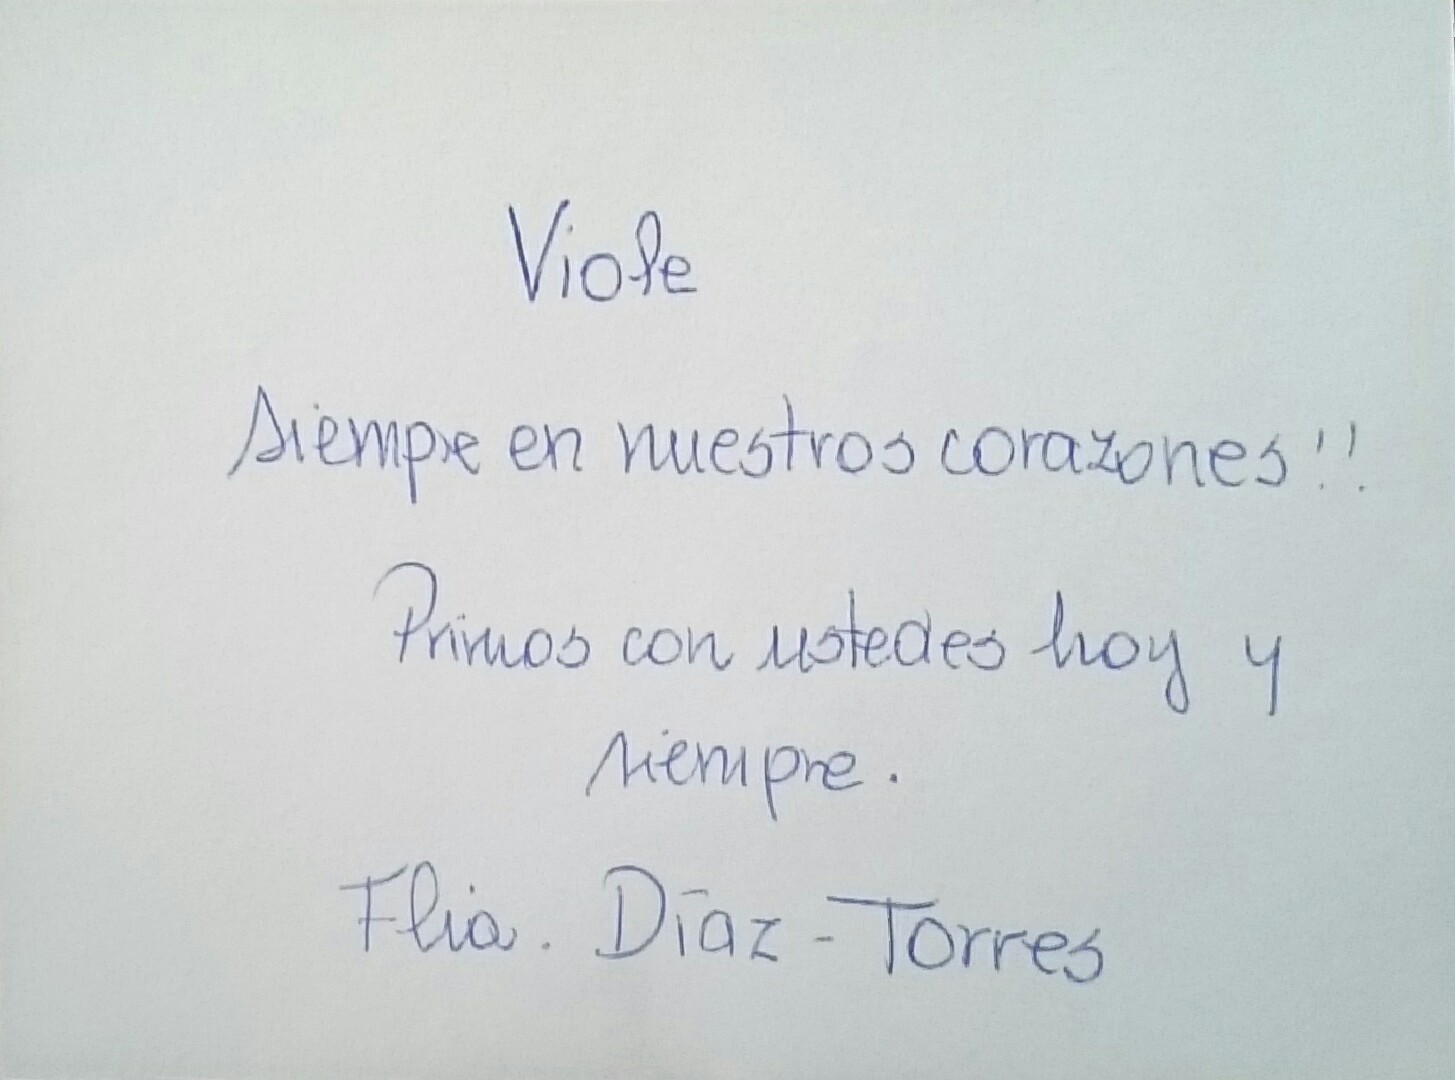 Viole
Siempre en nuestros corazones!!
Primos con ustedes hoy y
siempre.
Flia. Díaz - Torres